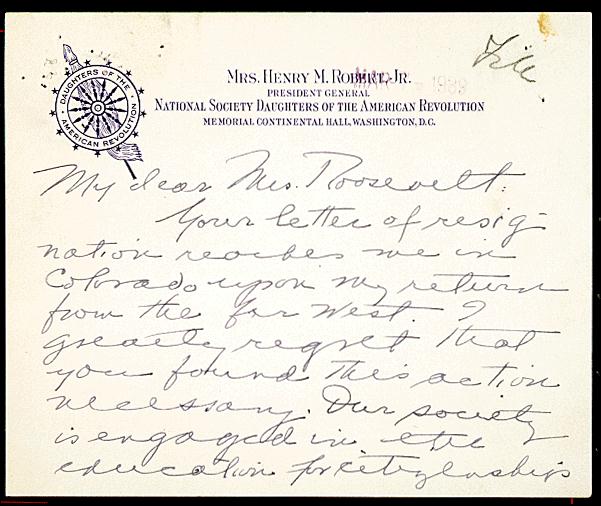 File
DAUGHTERS OF THE
AMERICAN REVOLUTION
MRS. HENRY M. ROBERT, JR.
MAR 1939
PRESIDENT GENERAL
NATIONAL SOCIETY DAUGHTERS OF THE AMERICAN REVOLUTION
MEMORIAL CONTINENTAL HALL, WASHINGTON, D.C.
My dear Mrs. Roosevelt:
Your letter of resig-
nation reaches me in
Colorado upon my return
from the far West. I
greatly regret that
you found this action
necessary. Our society
is engaged in the
education for citizenship